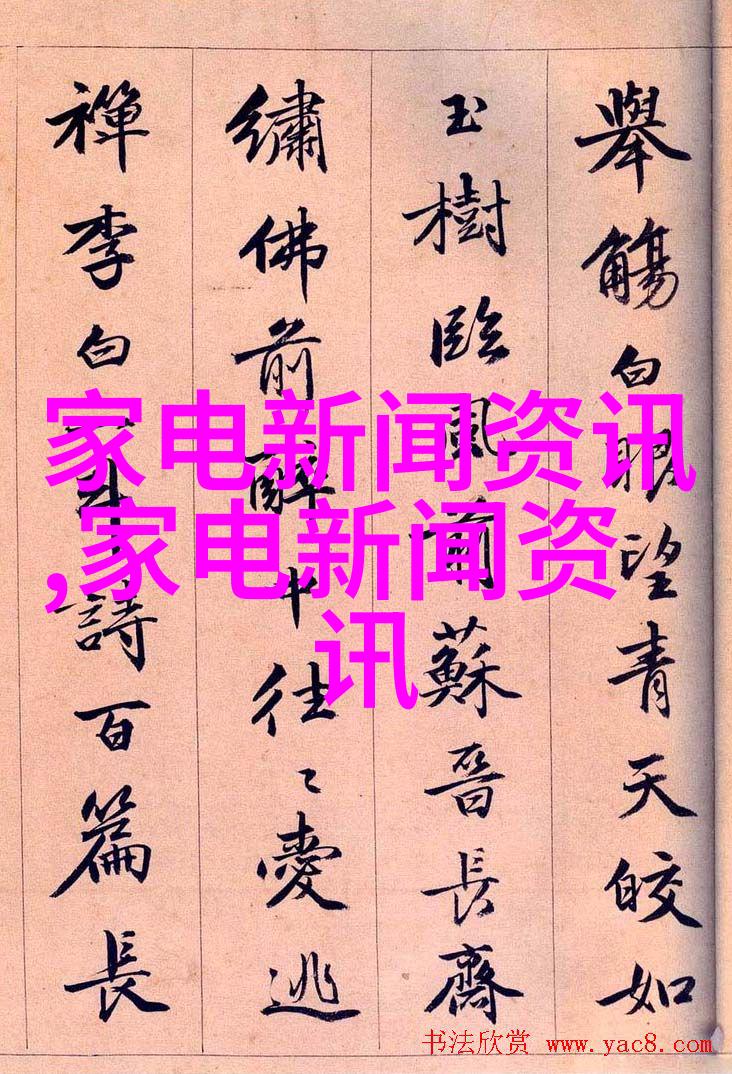 舉觴白眼望青天皎如
玉樹臨風前蘇晉長齋
繡佛前醉中往〻愛逃
禪李白一斗詩百篇長
家电新闻资讯
,家电新闻资
讯
书法欣赏 www.yac8.com